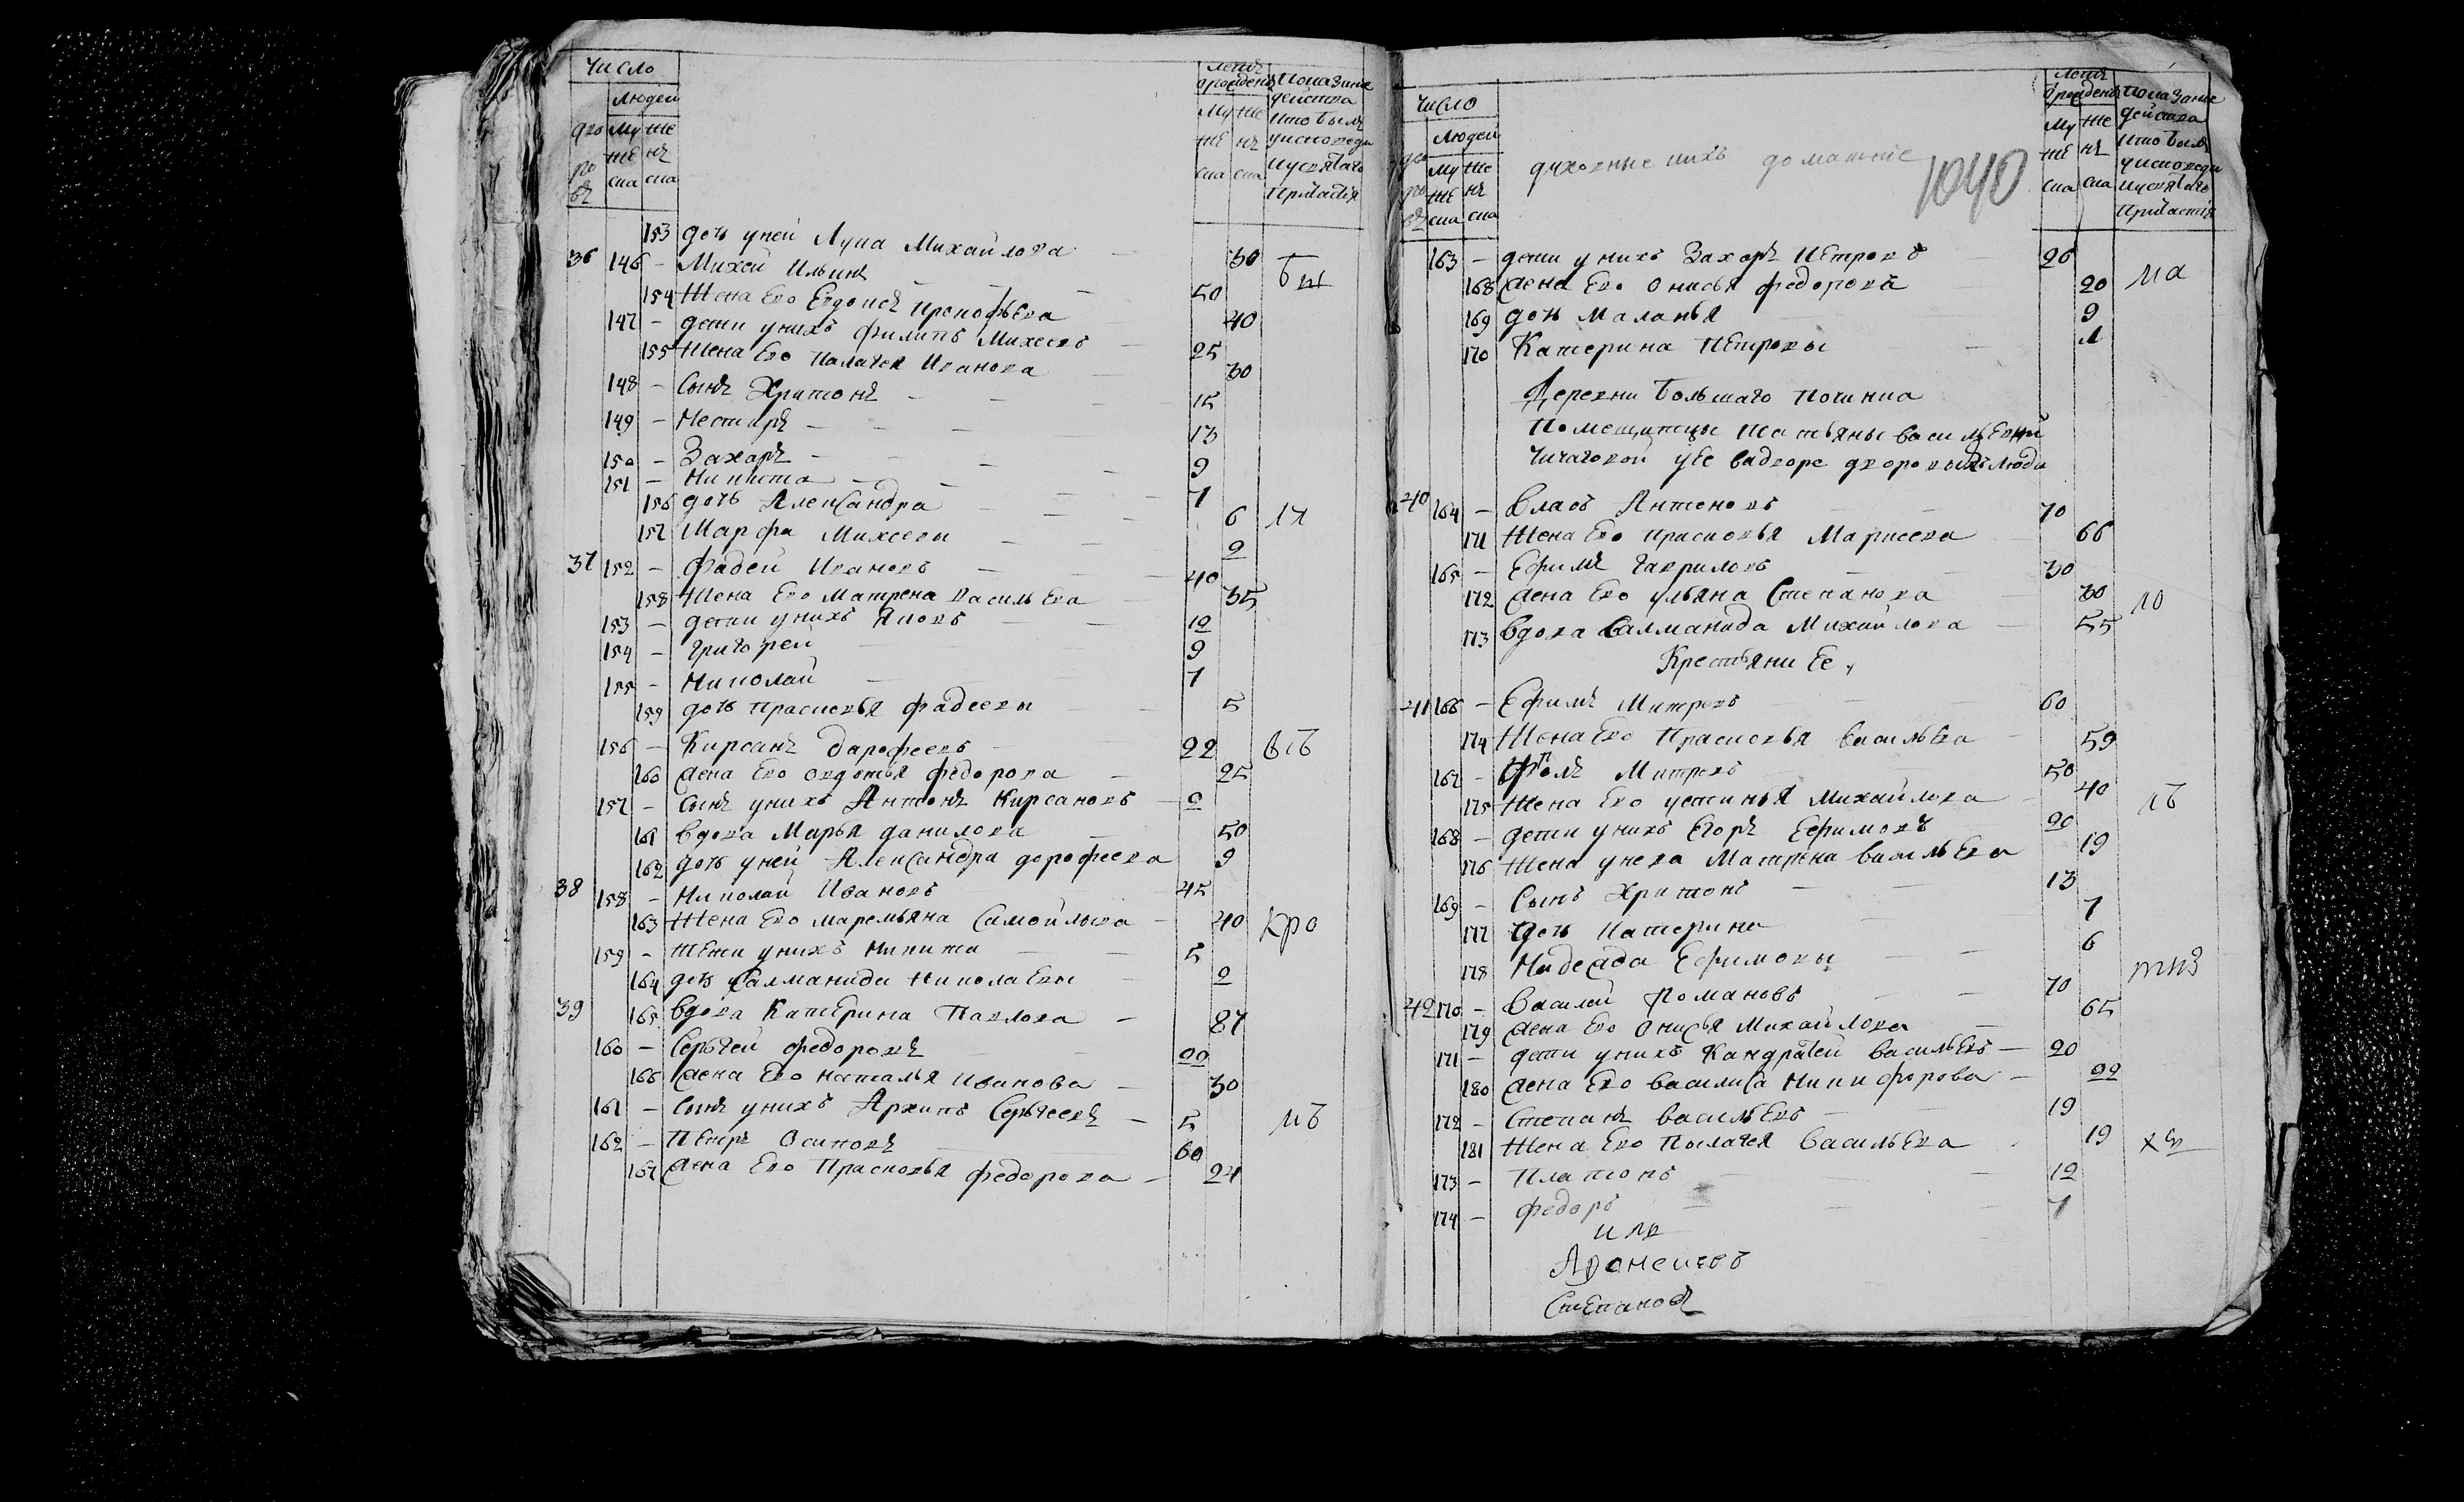 Число
Людей
дво ро въ
му же ска
же нъ ска
летъ отрожденія
му же ска
же нъ ска
Показаніе действа кто былъ у исповеди и у святаго Причастія
153 дочь у ней Лука Михайлова — 30
36 146 — Михей Ильинъ — 50
154 Жена Ево Евдокея Прокофьева 40
147 — дети у нихъ Филипъ Михеевъ — 25
155 Жена Ево Палагея Иванова — 30
148 — Сынъ Харитонъ — 15
149 — Нестаръ — 13
150 — Захаръ — 9
151 — Никита — 7
156 дочь Александра — 6
157 Марфа Михеевы — 2
37 152 — Фадей Ивановъ — 40
158 Жена Ево Матрена Васильева — 35
153 — дети у нихъ Яковъ — 12
154 — Григорей — 9
155 — Николай — 7
159 дочь Прасковья Фадеевы — 5
156 — Кирсанъ Дарофеевъ — 22
160 Жена Ево Овдотья Федорова — 25
157 — Сынъ у нихъ Антонъ Кирсановъ — 2
161 вдова Марья Данилова — 50
162 дочь у ней Александра Дорофеева 9
38 158 — Николай Ивановъ 45
163 Жена Ево Маремьяна Самойлова — 40
159 — дети у нихъ Никита — 5
164 дочь Саламанида Николаевы — 2
39 165 вдова Катерина Павлова — 87
160 — Сергей Федоровъ — 22
166 Жена Ево Наталья Иванова — 30
161 — Сынъ у нихъ Архипъ Сергеевъ — 5
162 — Петръ Осиповъ 60
167 Жена Ево Прасковья Федорова — 24
Число
Людей
дво ро въ
му же ска
же нъ ска
духовные ихъ домашніе
1040
летъ отрожденія
му же ска
же нъ ска
Показаніе действа кто былъ у исповеди и у святаго Причастія
163 — дети у нихъ Захаръ Петровъ 26
168 Жена Ево Онисья Федорова 20
169 дочь Маланья 9
170 Катерина Петровы —
Деревни Большаго Починка
Помещицы Татьяны Васильевны
Чичаговой у ее вадворе дворовыхъ люди
40 164 — Власъ Антоновъ 70
171 Жена Ево Прасковья Маркеева — 66
165 — Ефимъ Гавриловъ — 30
172 Жена Ево Ульяна Степанова — 30
173 вдова Саламанида Михайлова — 55
Крестьяни Ее
41 166 — Ефимъ Митревъ 60
174 Жена Ево Прасковья Васильева — 59
167 — Митревъ 50
175 Жена Ево Устинья Михайлова — 40
168 — дети у нихъ Егоръ Ефимовъ 20
176 Жена у нева Матрена Васильева 19
169 — Сынъ Харитонъ — 13
177 дочь Катерина 7
178 Надежда Ефимовы — 6
42 170 — Василей Романовъ — 70
179 Жена Ево Онисья Михайлова — 65
171 — дети у нихъ Кандратей Васильевъ — 20
180 Жена Ево Василиса Никифорова — 22
172 — Степанъ Васильевъ — 19
181 Жена Ево Палагея Васильева 19
173 — Платонъ — 12
174 — Федоръ — 7
Степановъ